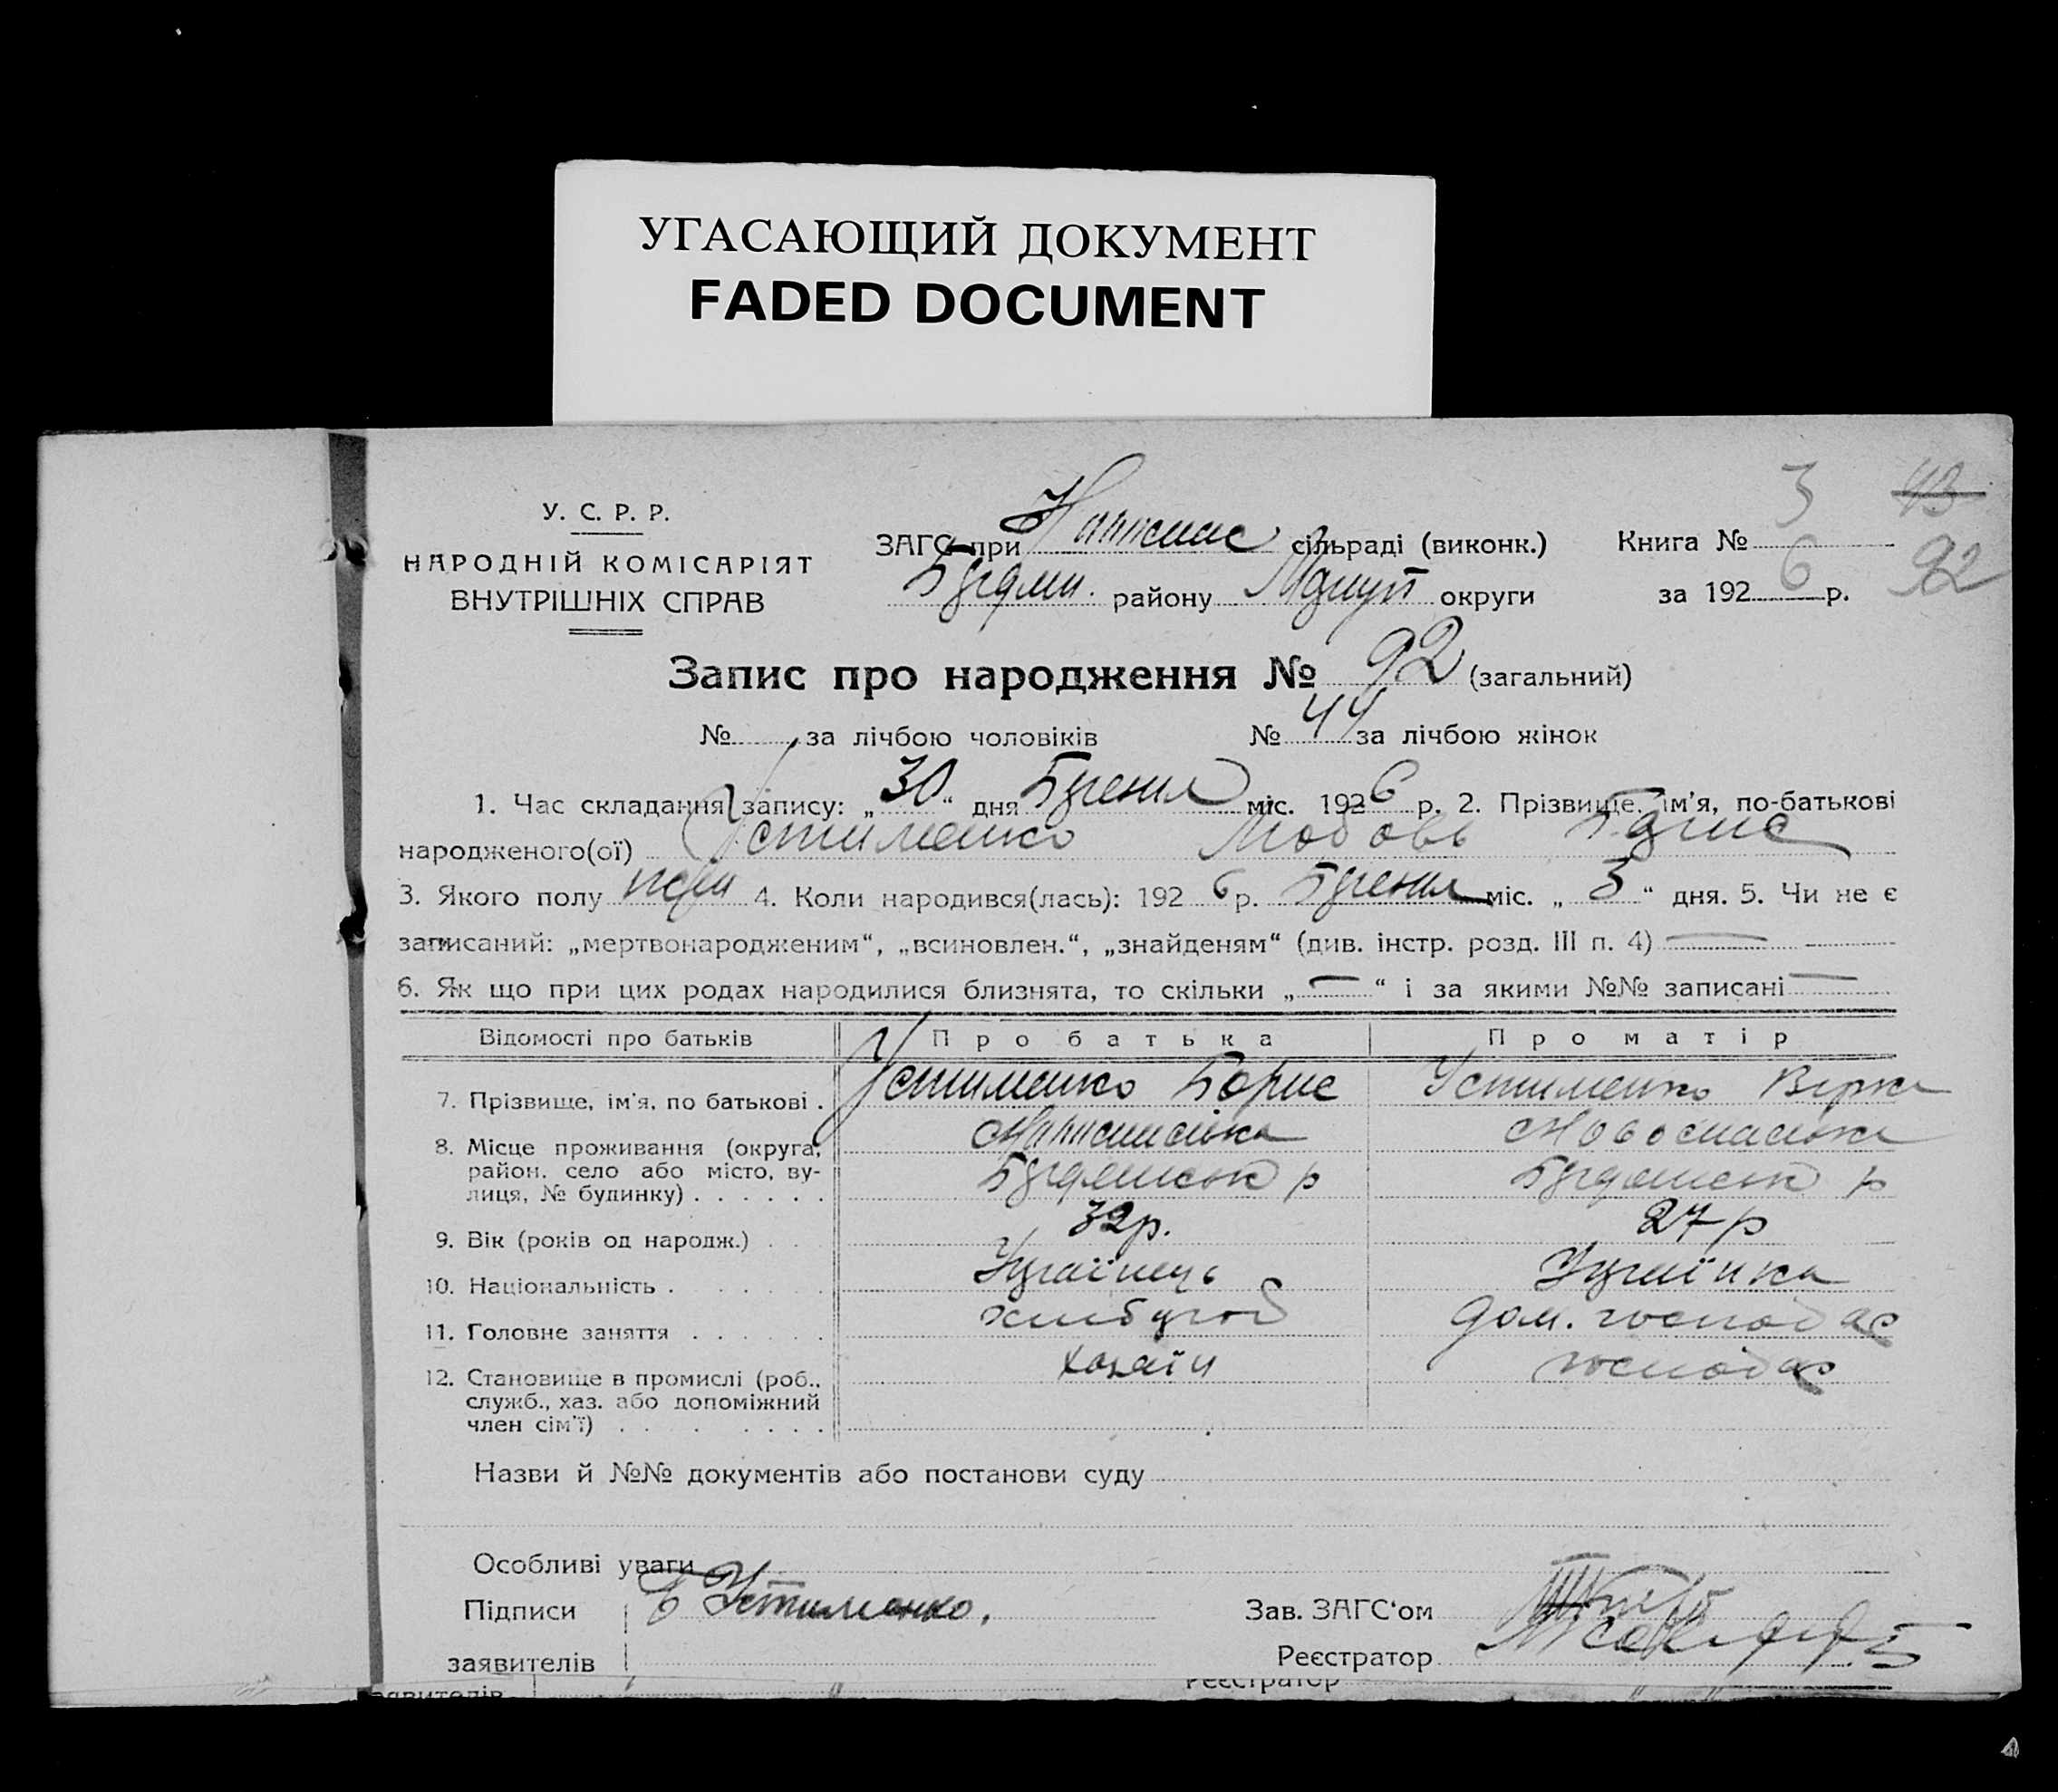 УГАСАЮЩИЙ ДОКУМЕНТ
FADED DOCUMENT
У. С. Р. Р.
НАРОДНІЙ КОМІСАРІЯТ
ВНУТРІШНІХ СПРАВ
ЗАГС при сільраді (виконк.)
району округи
Книга № 3 43
за 1926 р. 92
Запис про народження № 92 (загальний)
№ за лічбою чоловіків № 44 за лічбою жінок
1. Час складання запису: „30“ дня міс. 1926 р. 2. Прізвище, ім'я, по-батькові
народженого(ої) Устименко Любовь Борис
3. Якого полу 4. Коли народився(лась): 1926 р. міс. „5“ дня. 5. Чи не є
записаний: „мертвонародженим“, „всиновлен.“, „знайденям“ (див. інстр. розд. III п. 4)
6. Як що при цих родах народилися близнята, то скільки „—“ і за якими №№ записані —
Відомості про батьків Про батька Про матір
7. Прізвище, ім'я, по батькові . Устименко Борис Устименко Вірка
8. Місце проживання (округа, район, село або місто, вулиця, № будинку) . . . . . .
9. Вік (років од народж.) . . . 32р. 27р
10. Національність . . . . . . Українець Українка
11. Головне заняття . . . . . . хлібороб дом. господар
12. Становище в промислі (роб., служб., хаз. або допоміжний член сім'ї) . . . . . . . хазяїн господар
Назви й №№ документів або постанови суду
Особливі уваги
Підписи Б Устименко. Зав. ЗАГС'ом
заявителів Реєстратор
заявителів Реєстратор